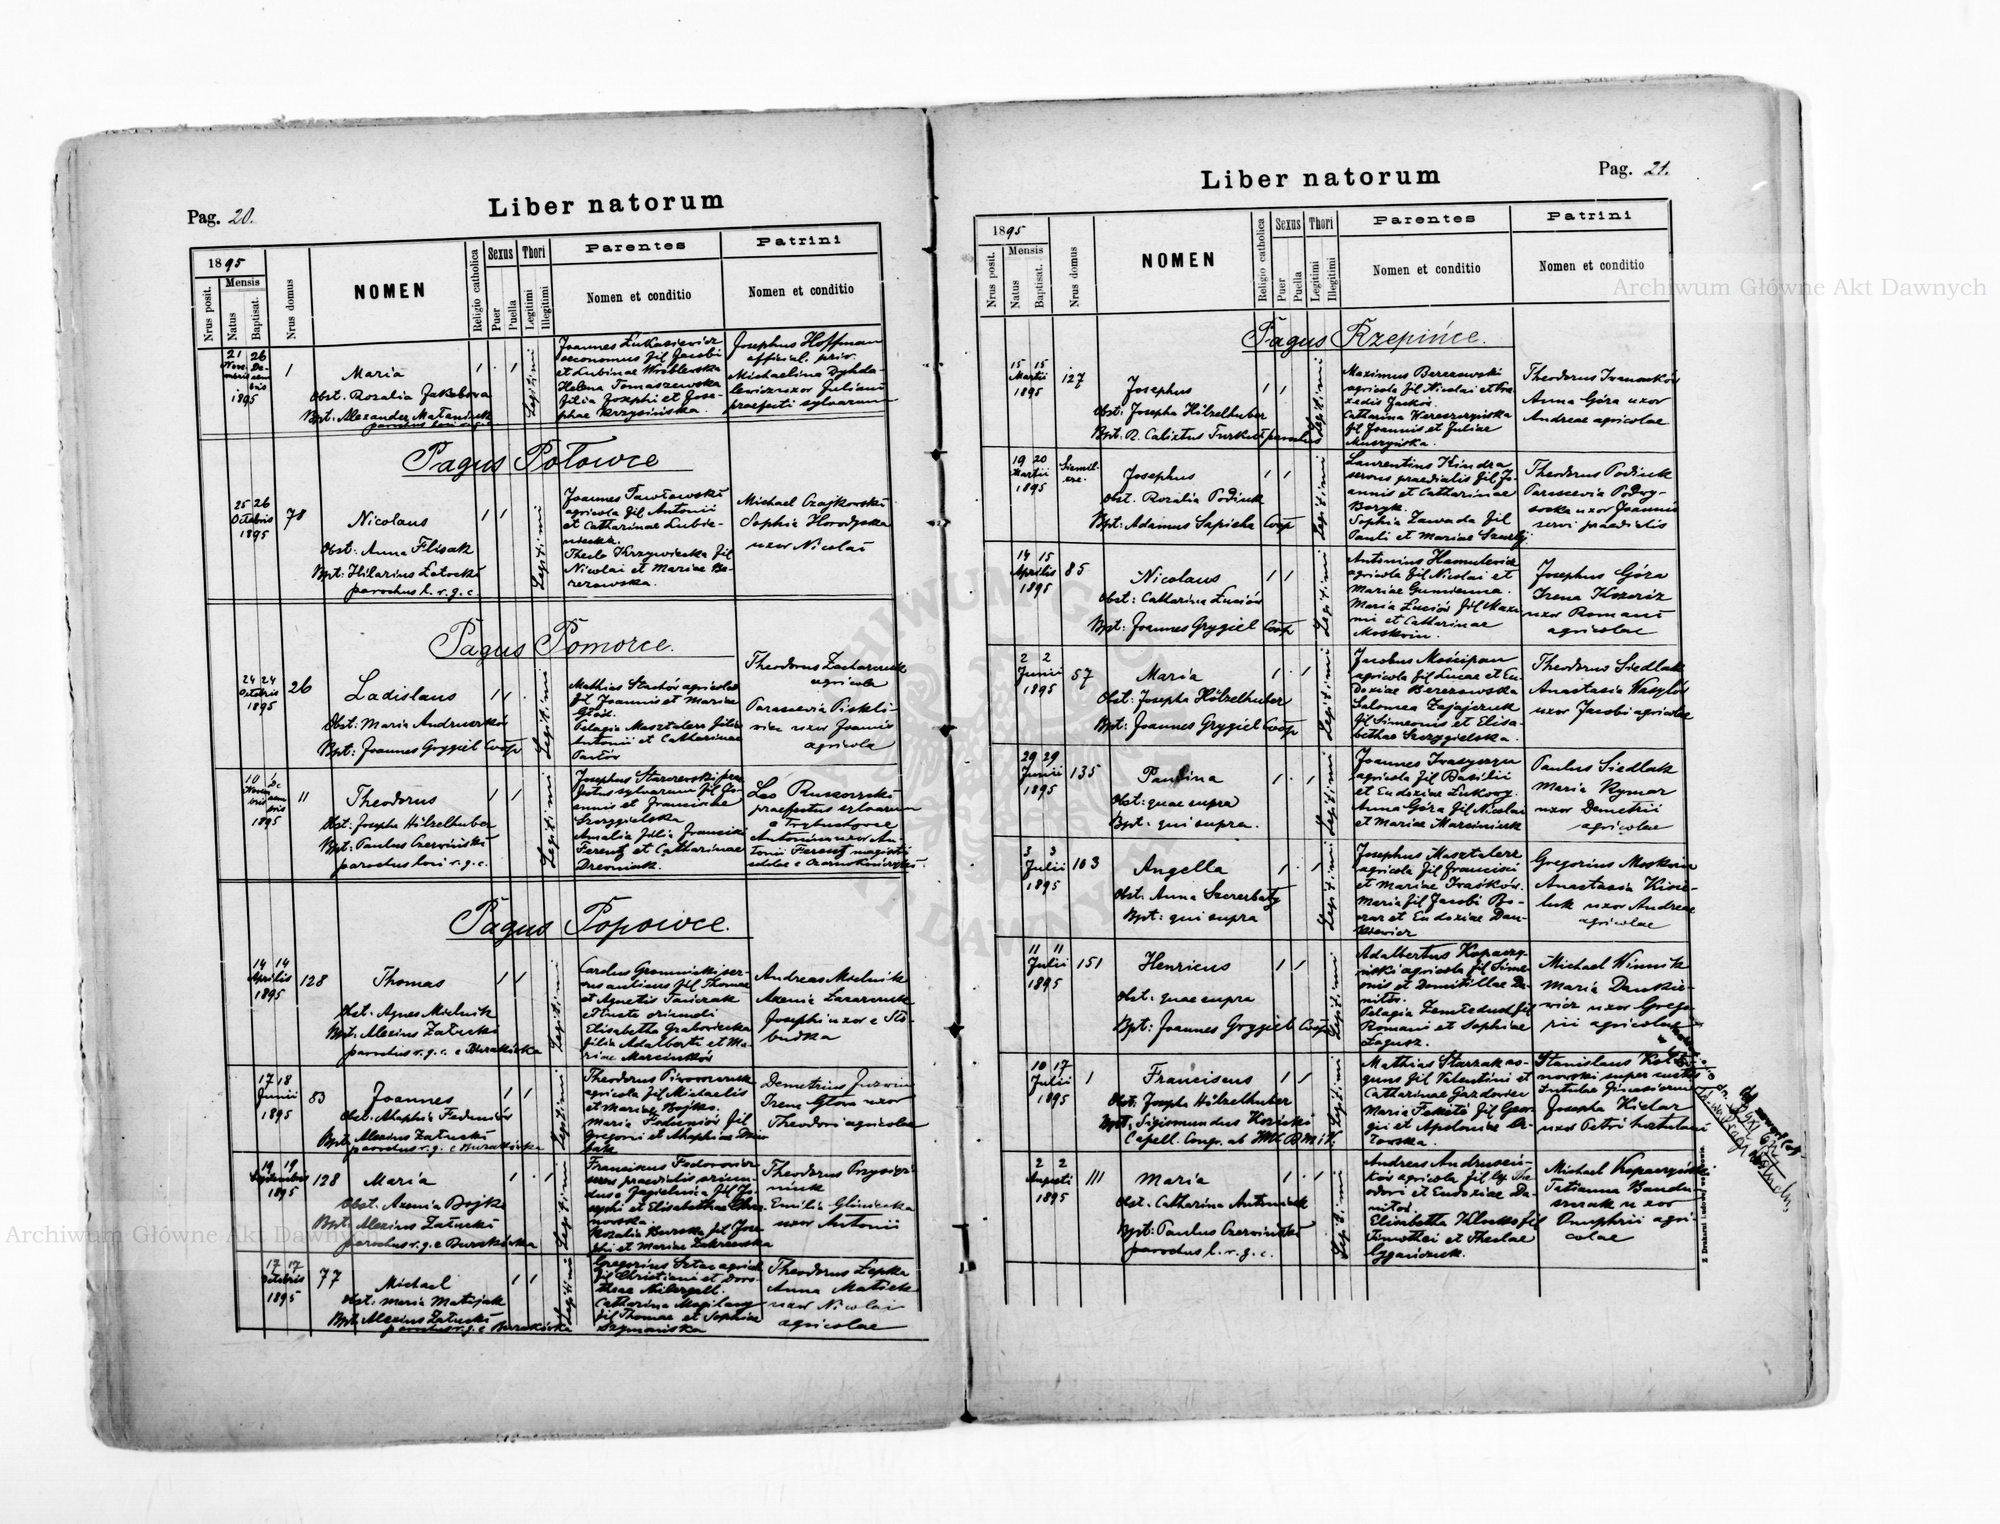 Pag. 20.
Liber natorum
1895
Mensis
Nrus posit.
Natus
Baptisat.
Nrus domus
NOMEN
Religio catholica
Sexus
Puer
Puella
Thori
Legitimi
Illegitimi
Parentes
Nomen et conditio
Patrini
Nomen et conditio
21 26
1895
1
Maria
Obst. Rozalia Jakubowa
Bpt: Alexander
Legitimi
Joannes Łukasiewicz
oeconomus fil Jacobi
et Lubinae Wroblewska
Helena Tomaszewska
filia Josephi et Jose-
phae Krzysińska.
Josephus Hoffman
official. priv.
Michaelina
uxor Juliani
praefecti sylvarum
Pagus Połowce
25 26
Octobris
1895
78
Nicolaus
Obst: Anna Flisak
Bpt: Hilarius Łotocki
parochus l. r. g. c.
Legitimi
Joannes Pawłowski
agricola fil Antonii
et Catharinae
Thecla Krzywiecka fil
Nicolai et Mariae Be-
rezowska.
Michael Czajkowski
Sophia Horodyska
uxor Nicolai
Pagus Pomorce.
24 24
Octobris
1895
26
Ladislaus
Obst: Maria Andruszków
Bpt: Joannes Grygiel Coop
Legitimi
Mathias Stachów agricola
fil Joannis et Mariae
Głód.
Pelagia Masztalerz filia
Antonii et Catharinae
Pastór
Theodorus Zacharczuk
agricola
Parascevia
uxor Joannis
agricola
10
1895
11
Theodorus
Obst: Josepha Hölzelhuber
Bpt: Paulus Czerwiński
parochus loci r. g. c.
Legitimi
Josephus Starzewski prae
fectus sylvarum fil Jo-
annis et Franciscae
Szczygielska
Amalia filia Francisci
Ferenz et Catharinae
Drewniak.
Leo
praefectus sylvarum
Antonina uxor An-
tonii Ferenz magistri
Pagus Popowce.
14 14
Aprilis
1895
128
Thomas
Obst: Agnes Mielnik
Bpt: Alexius Załucki
parochus r. g. c. e Burakówka
Legitimi
Carolus Gromnicki ser-
vus aulicus fil Thomae
et Agnetis
oriundi
Elisabetha Grabowiecka
filia Adalberti et Ma-
riae Marcinków
Andreas Mielnik
Axenia Lazarczuk
Josephi uxor e Sło-
budka
17 18
Junii
1895
83
Joannes
Obst: Ahaphia Feduniów
Bpt: Alexius Załucki
parochus r. g. c Burakówka
Legitimi
Theodorus Piwowarczuk
agricola fil Michaelis
et Mariae Bojko.
Maria Feduniów fil
Gregorii et Ahaphiae
Demetrius Juzwin
Irene Głowa uxor
Theodori agricolae
19 19
Septembris
1895
128
Maria
Obst. Axenia Bojko
Bpt: Alexius Załucki
parochus r. g. c Burakówka
Legitimi
Franciscus Fedorowicz
servus praedialis oriun-
dus e Jagielnica fil Jo-
sephi et Elisabethae
Rozalia Burska fil Jose-
phi et Mariae Zakrzewska
Theodorus
Emilia
uxor Antonii
17 17
Octobris
1895
77
Michael
Obst: Maria Matijak
Bpt: Alexius Załucki
parochus r. g. c Burakówka
Legitimi
Gregorius Sztac agricola
fil Christiani et Doro-
theae
Catharina Mogilany
fil Thomae et Sophiae
Szymańska
Theodorus Łepka
Anna
uxor Nicolai
agricolae
Pag. 21.
Liber natorum
1895
Mensis
Nrus posit.
Natus
Baptisat.
Nrus domus
NOMEN
Religio catholica
Sexus
Puer
Puella
Thori
Legitimi
Illegitimi
Parentes
Nomen et conditio
Patrini
Nomen et conditio
Pagus Rzepińce.
15 15
Martii
1895
127
Josephus
Obst: Josepha Hölzelhuber
Bpt. R. Calixtus parochus
Legitimi
Maximus Berezowski
agricola fil Nicolai et
Catharina Wereszczyńska
fil Joannis et Juliae
Muszyńska.
Theodorus Iwanoków
Anna Góra uxor
Andreae agricolae
19 20
Martii
1895
Josephus
Obst. Rozalia Podiuk
Bpt: Adamus Sapieha Coop
Legitimi
Laurentius Kindra
servus praedialis fil Jo-
annis et Catharinae
Boryk.
Sophia Zawada fil
Pauli et Mariae
Theodorus Podiuk
Parascevia
uxor Joannis
servi praedialis
14 15
Aprilis
1895
85
Nicolaus
Obst: Catharina Łuciów
Bpt: Joannes Grygiel Coop
Legitimi
Antonius
agricola fil Nicolai et
Mariae Gumienna.
Maria Łuciów fil Maxi
mi et Catharinae
Moskwin.
Josephus Góra
Irena
uxor Romani
agricolae
2 2
Junii
1895
57
Maria
Obst: Josepha Hölzelhuber
Bpt: Joannes Grygiel Coop
Legitimi
Jacobus Mościpan
agricola fil Lucae et Eu
doxiae Berezowska
Salomea Zajączuk
fil Simeonis et Elisa-
bethae Szczygielska.
Theodorus Siedlak
Anastasia Wasylów
uxor Jacobi agricolae
29 29
Junii
1895
135
Paulina
Obst: quae supra
Bpt: qui supra.
Legitimi
Joannes
agricola fil Basilii
et Eudoxiae
Anna Góra fil Nicolai
et Mariae Marciniuk
Paulus Siedlak
Maria Rymar
uxor Demetrii
agricolae
3 3
Julii
1895
103
Angella
Obst: Anna Szczerbaty
Bpt: qui supra
Legitimi
Josephus Masztalerz
agricola fil Francisci
et Mariae Iwaśków.
Maria fil Jacobi
et Eudoxiae Dan-
kiewicz
Gregorius Moskwin
Anastasia
uxor Andreae
agricolae
11 11
Julii
1895
151
Henricus
Obst: quae supra
Bpt: Joannes Grygiel Coop
Legitimi
Adalbertus Kopaczy-
ński agricola fil Sime
onis et Domitillae Da-
nitów.
Pelagia fil
Romani et Sophiae
Łagusz.
Michael Winnik
Maria Dankie-
wicz uxor Grego
rii agricolae
10 17
Julii
1895
1
Franciscus
Obst: Josepha Hölzelhuber
Bpt. Sigismundus Kozicki
Capell. Congr. ab
Legitimi
Mathias Starzak
fil Valentini et
Catharinae Gazdowicz
Maria Feketi fil Geor-
gii et Apoloniae
Stanislaus
Josepha Kielar
uxor Petri
2 2
Augusti
1895
111
Maria
Obst. Catharina Antoniuk
Bpt: Paulus Czerwiński
parochus l. r. g. c.
Legitimi
Andreas Andrusz-
ków agricola fil The
odori et Eudoxiae Da-
nitów.
Elisabetha Kluczko fil
Timothei et Theclae
Cyganczuk.
Michael Kopaczyński
Tatianna Bandu
uxor
Onuphrii agri-
colae
Archiwum Główne Akt Dawnych
Archiwum Główne Akt Dawnych